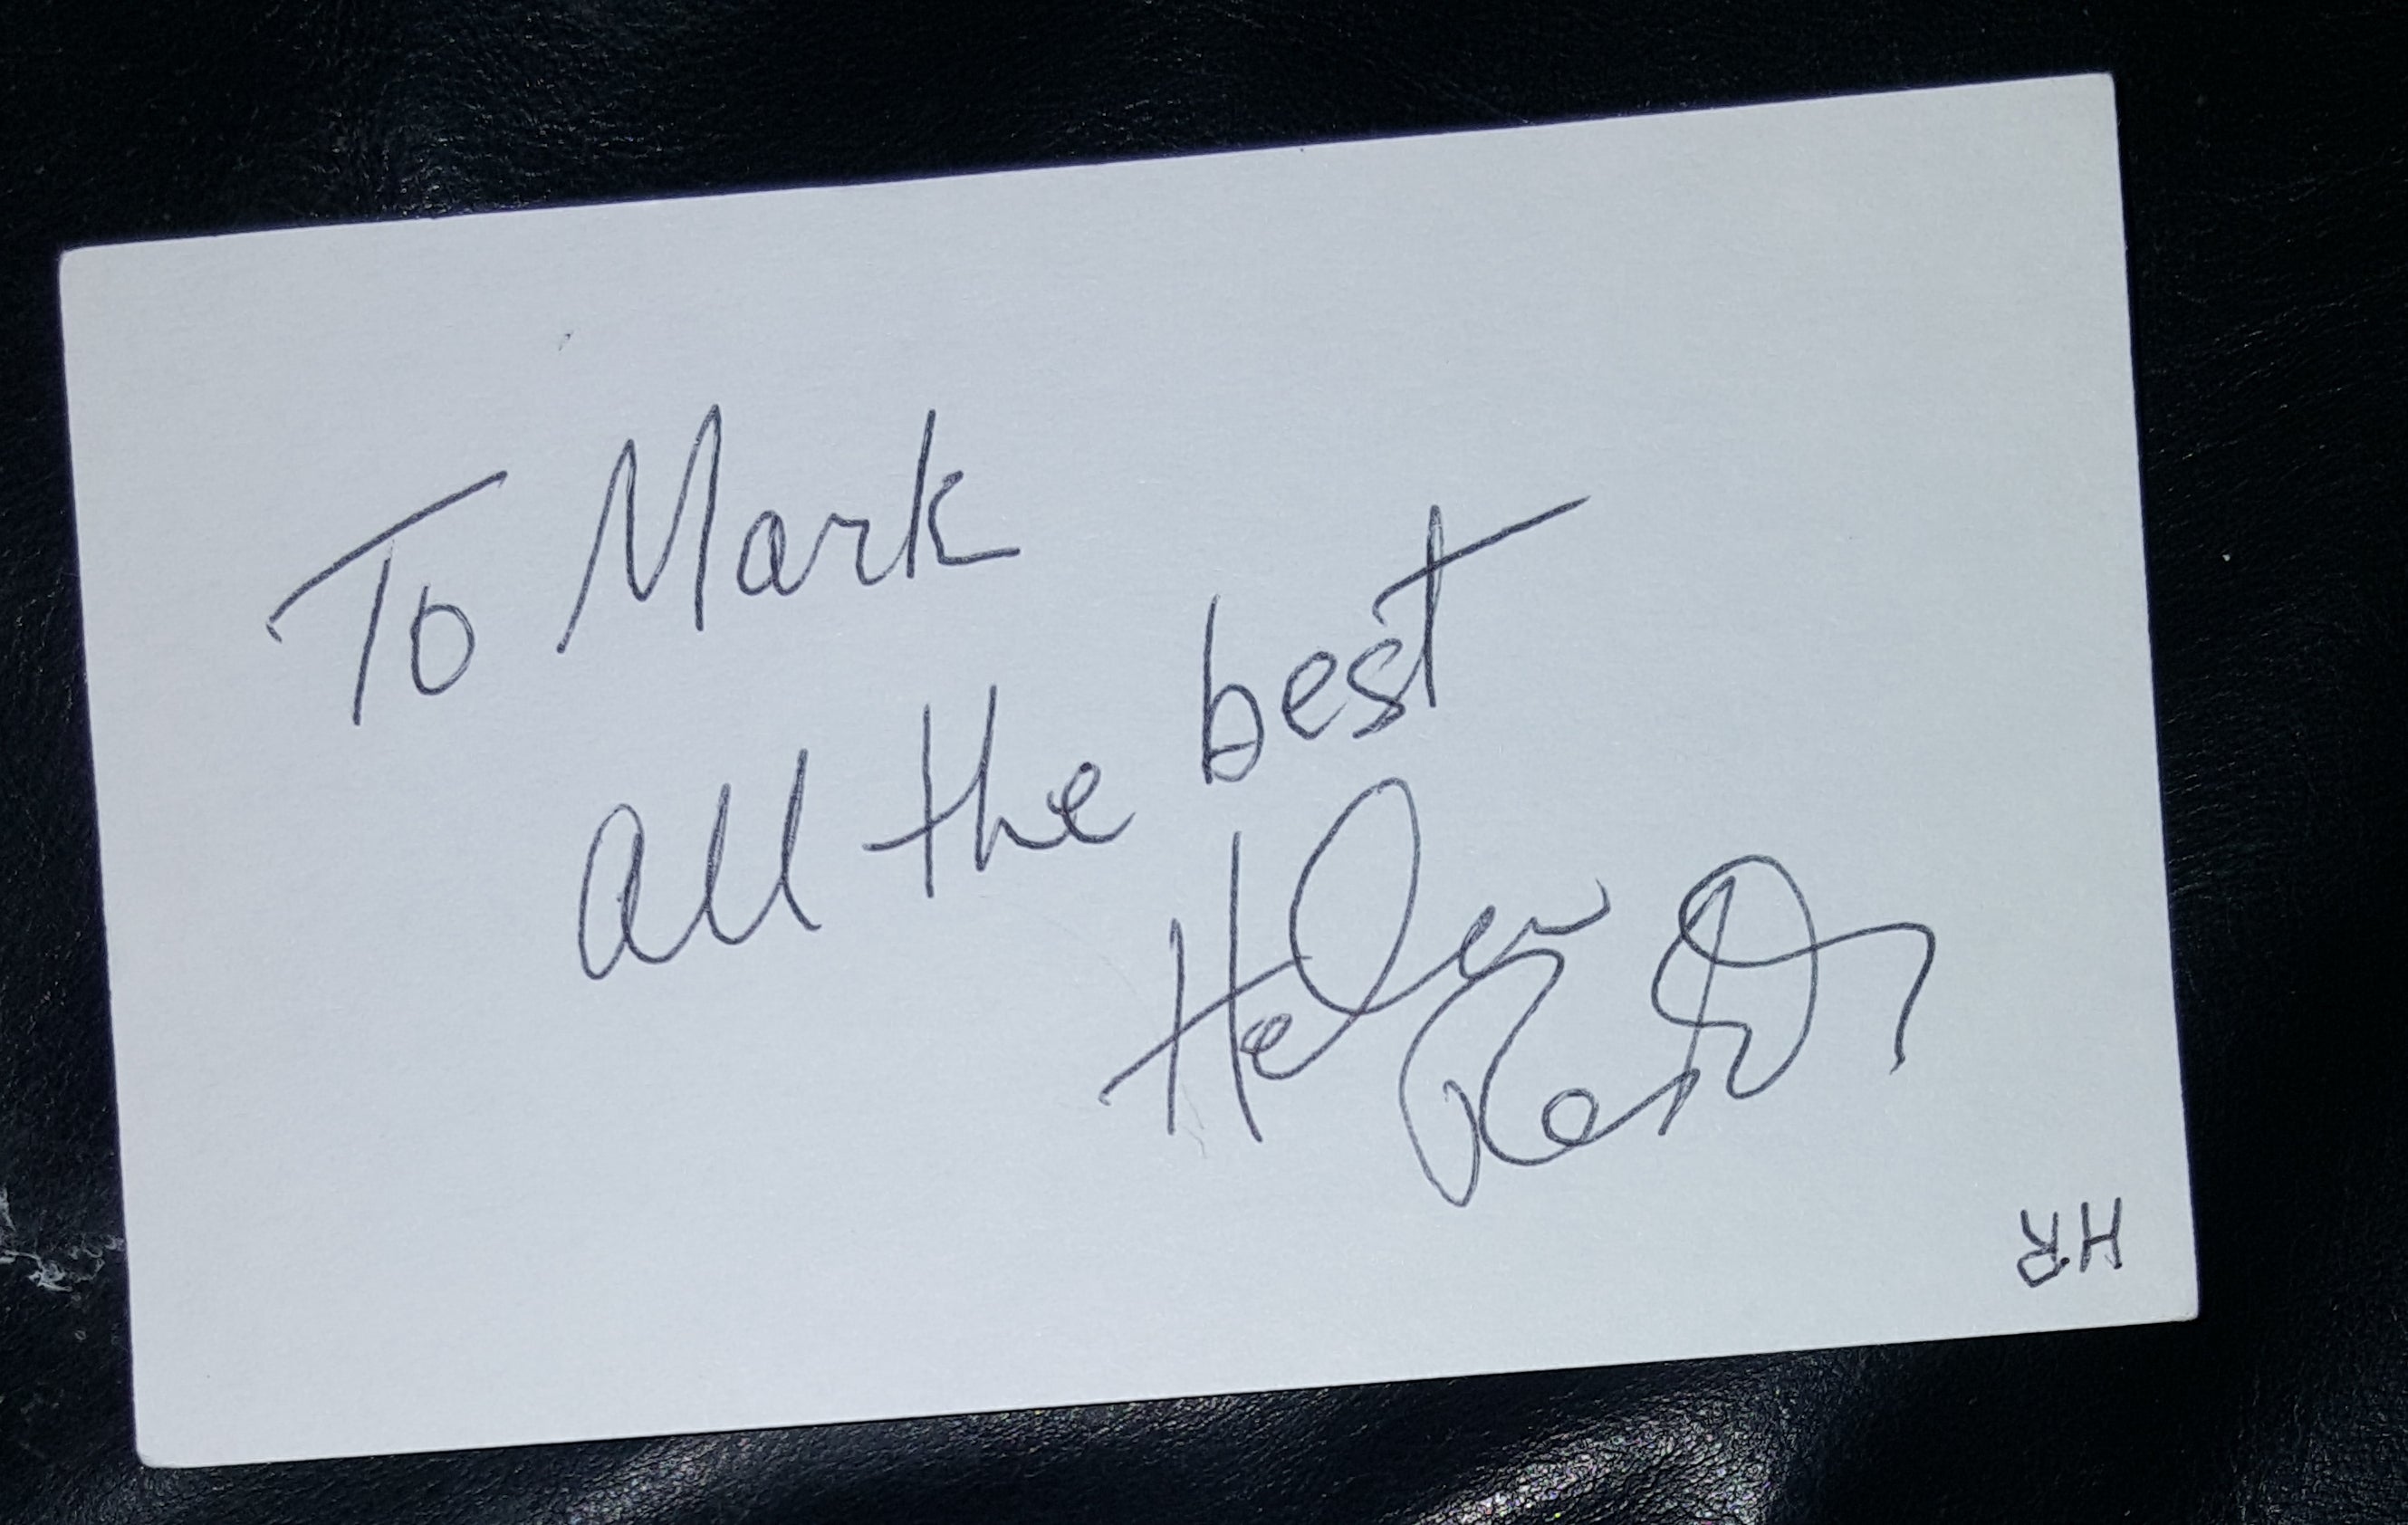 To Mark
all the best
Helen
HR